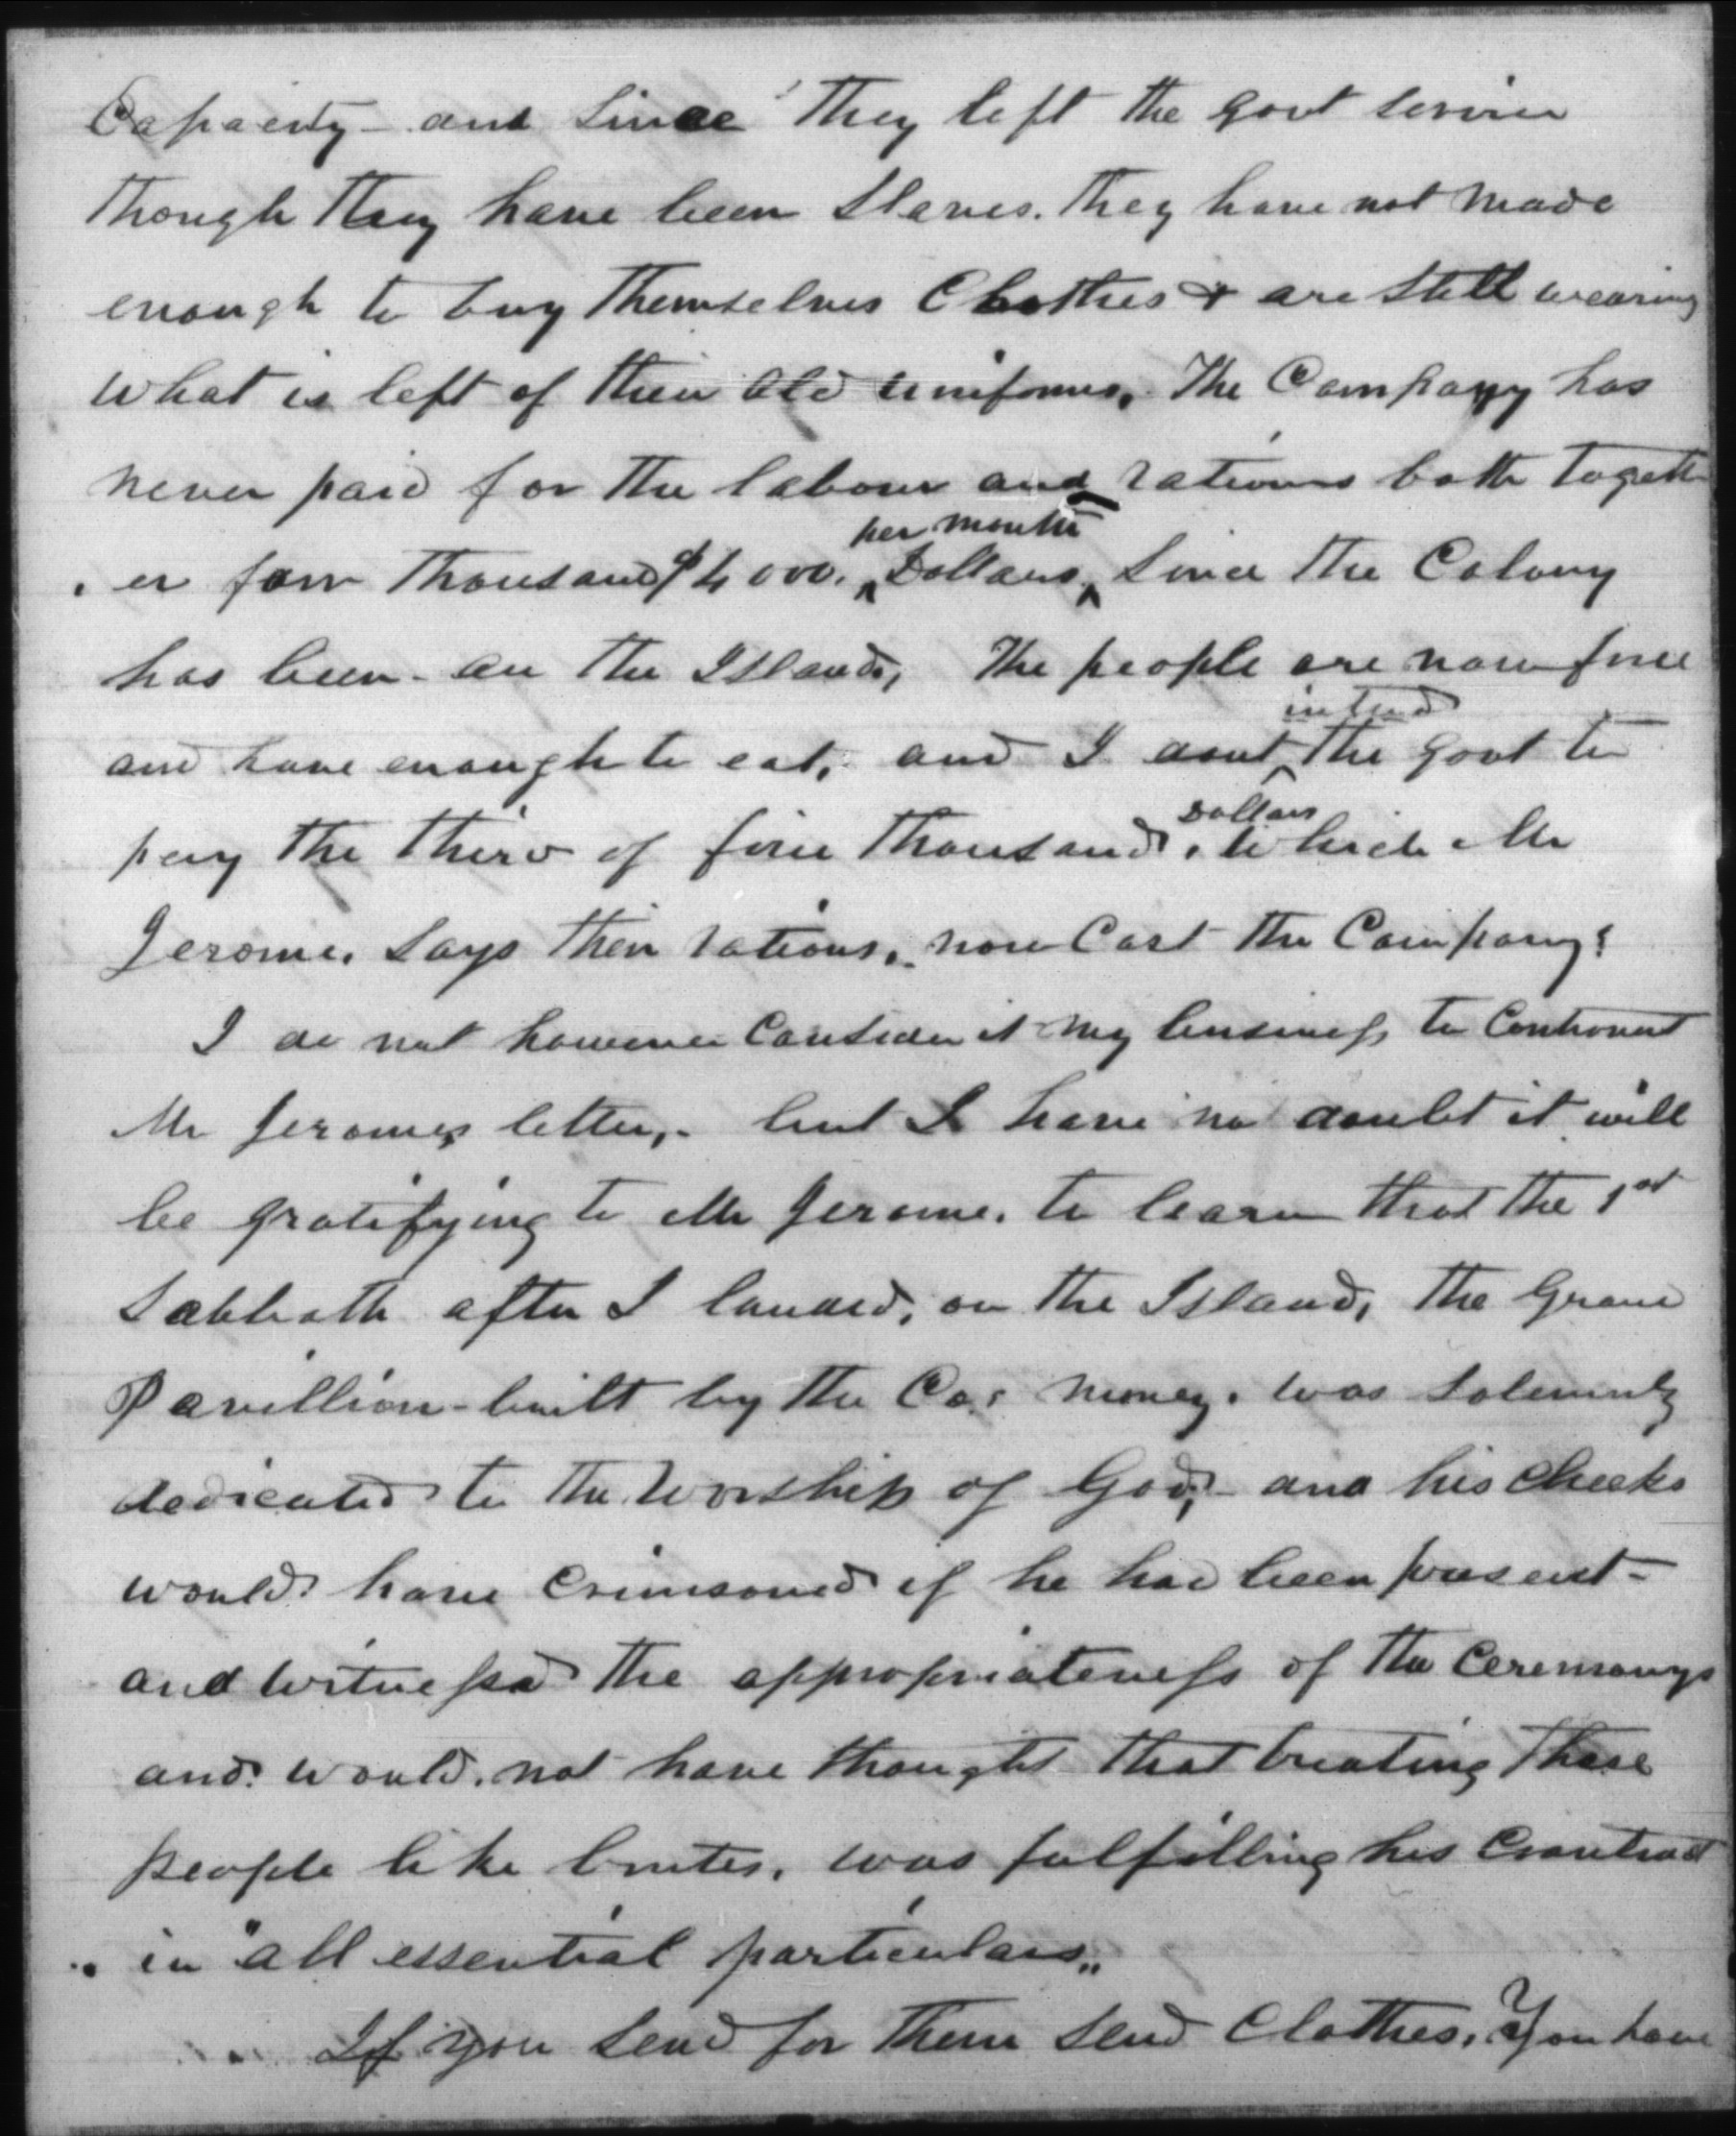 Capacity - and Since They left the Govt Service
Though They have been Slaves. They have not made
enough to buy Themselves Clothes & are still wearing
what is left of their old uniforms. The Company has
never paid for the labour and rations both togeth
er four Thousand $4000. Dollars per month Since the Colony
has been - on the Island, The people are now free
and have enough to eat, and I dont intend the Govt to
pay the third of five thousand, Dollars which Mr
Jerome, Says their rations, now Cost the Company!
I do not however Consider it my business to Controvert
Mr Jeromes letter, - but I have no doubt it will
be gratifying to Mr Jerome. to learn that the 1st
Sabbath after I landed, on the Island, The Grand
Pavillion - built by the Co.s money. was Solemnly
dedicated to the Worship of God, - and his Cheeks
would have Crimsoned if he had been present -
and witnessed the appropriateness of the Ceremonys
and would not have thought that treating These
people like brutes, was fulfilling his Contract
in "all essential particulars„
If you send for Them Send Clothes, You have